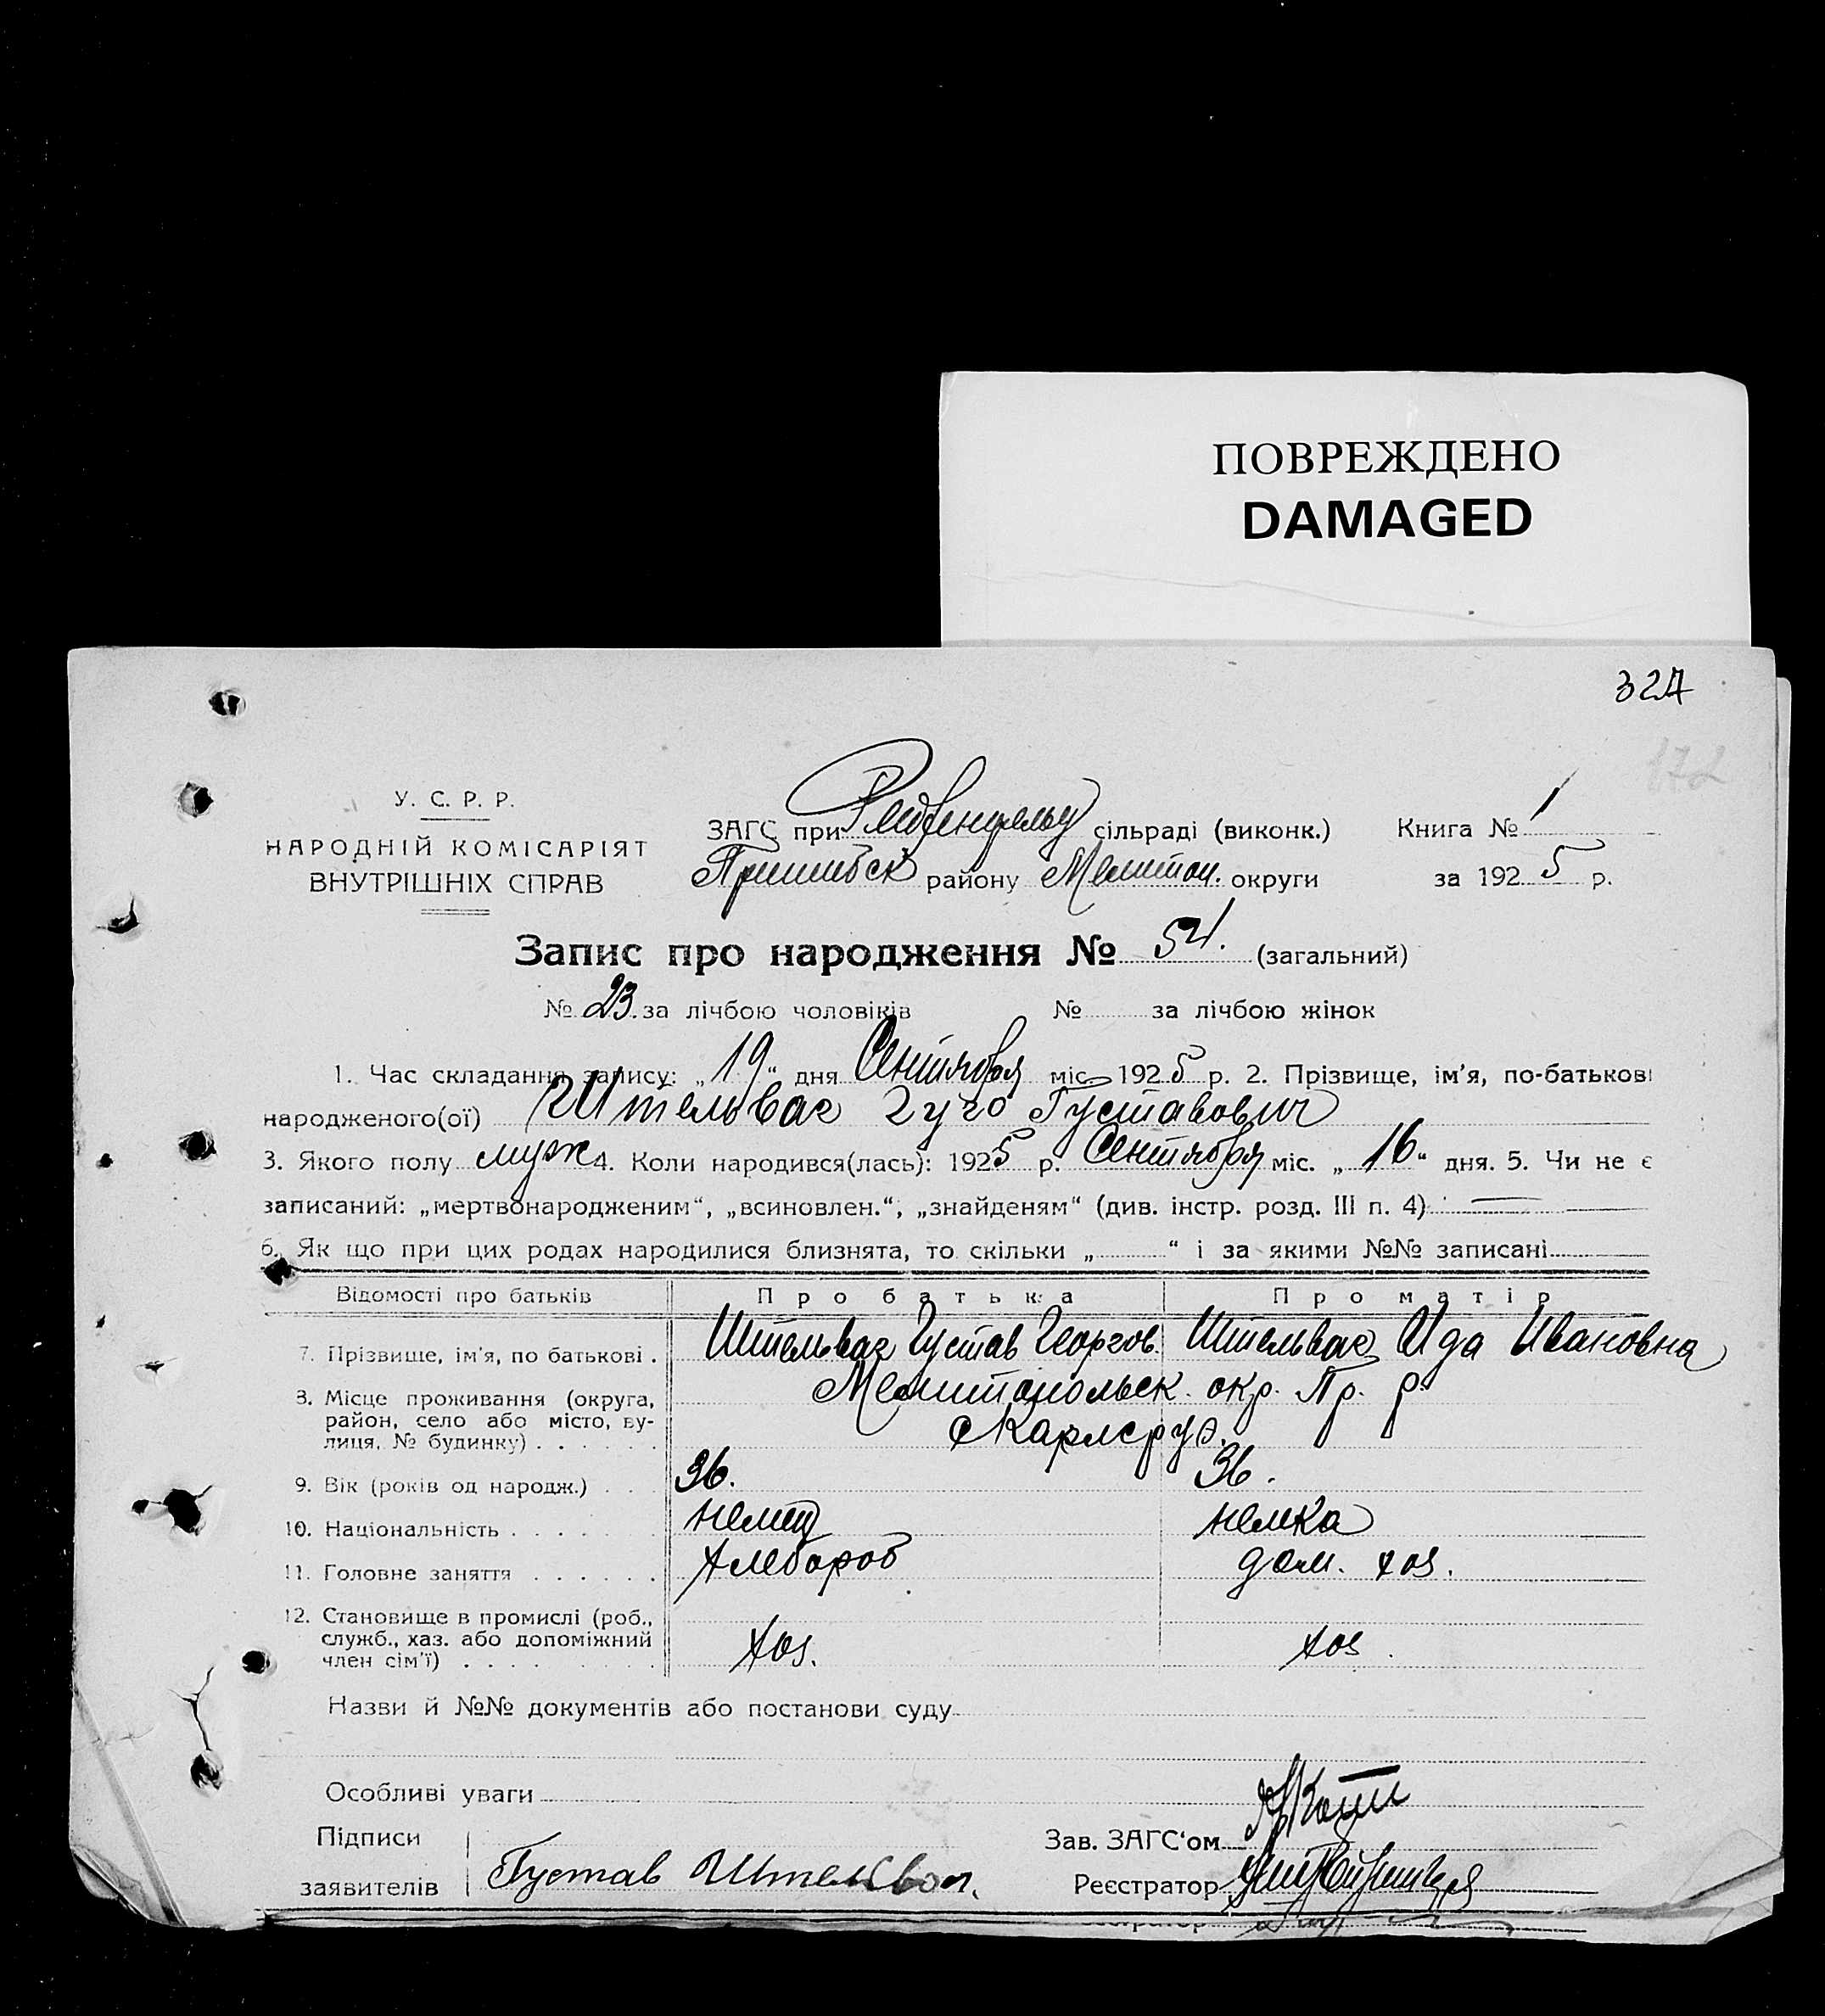 ПОВРЕЖДЕНО
DAMAGED
324
172
У. С. Р. Р.
НАРОДНІЙ КОМІСАРІЯТ
ВНУТРІШНІХ СПРАВ
ЗАГС при сільраді (виконк.) Книга № 1
Пришибск району Мелитоп. округи за 1925 р.
Запис про народження № 54. (загальний)
№ 23. за лічбою чоловіків № за лічбою жінок
1. Час складання запису: „19“ дня Сентября міс. 1925 р. 2. Прізвище, ім'я, по-батькові
народженого(ої) Штельваг Гуго Густавович
3. Якого полу муж 4. Коли народився(лась): 1925 р. Сентября міс. „16“ дня. 5. Чи не є
записаний: „мертвонародженим“, „всиновлен.“, „знайденям“ (див. інстр. розд. III п. 4)
6. Як що при цих родах народилися близнята, то скільки „ “ і за якими №№ записані
Відомості про батьків Про батька Про матір
7. Прізвище, ім'я, по батькові . Штельваг Густав Георгов. Штельваг Ида Ивановна
8. Місце проживання (округа, район, село або місто, вулиця, № будинку) . . . . . . Мелитопольск. окр. Пр. р.
с Карлсруэ.
9. Вік (років од народж.) . . . 36. 36.
10. Національність . . . . . немец немка
11. Головне заняття . . . . . . хлебороб дом. хоз.
12. Становище в промислі (роб., служб., хаз. або допоміжний член сім'ї) . . . . хоз. хоз.
Назви й №№ документів або постанови суду
Особливі уваги
Підписи
заявителів Густав Штельваг.
Зав. ЗАГС'ом
Реєстратор